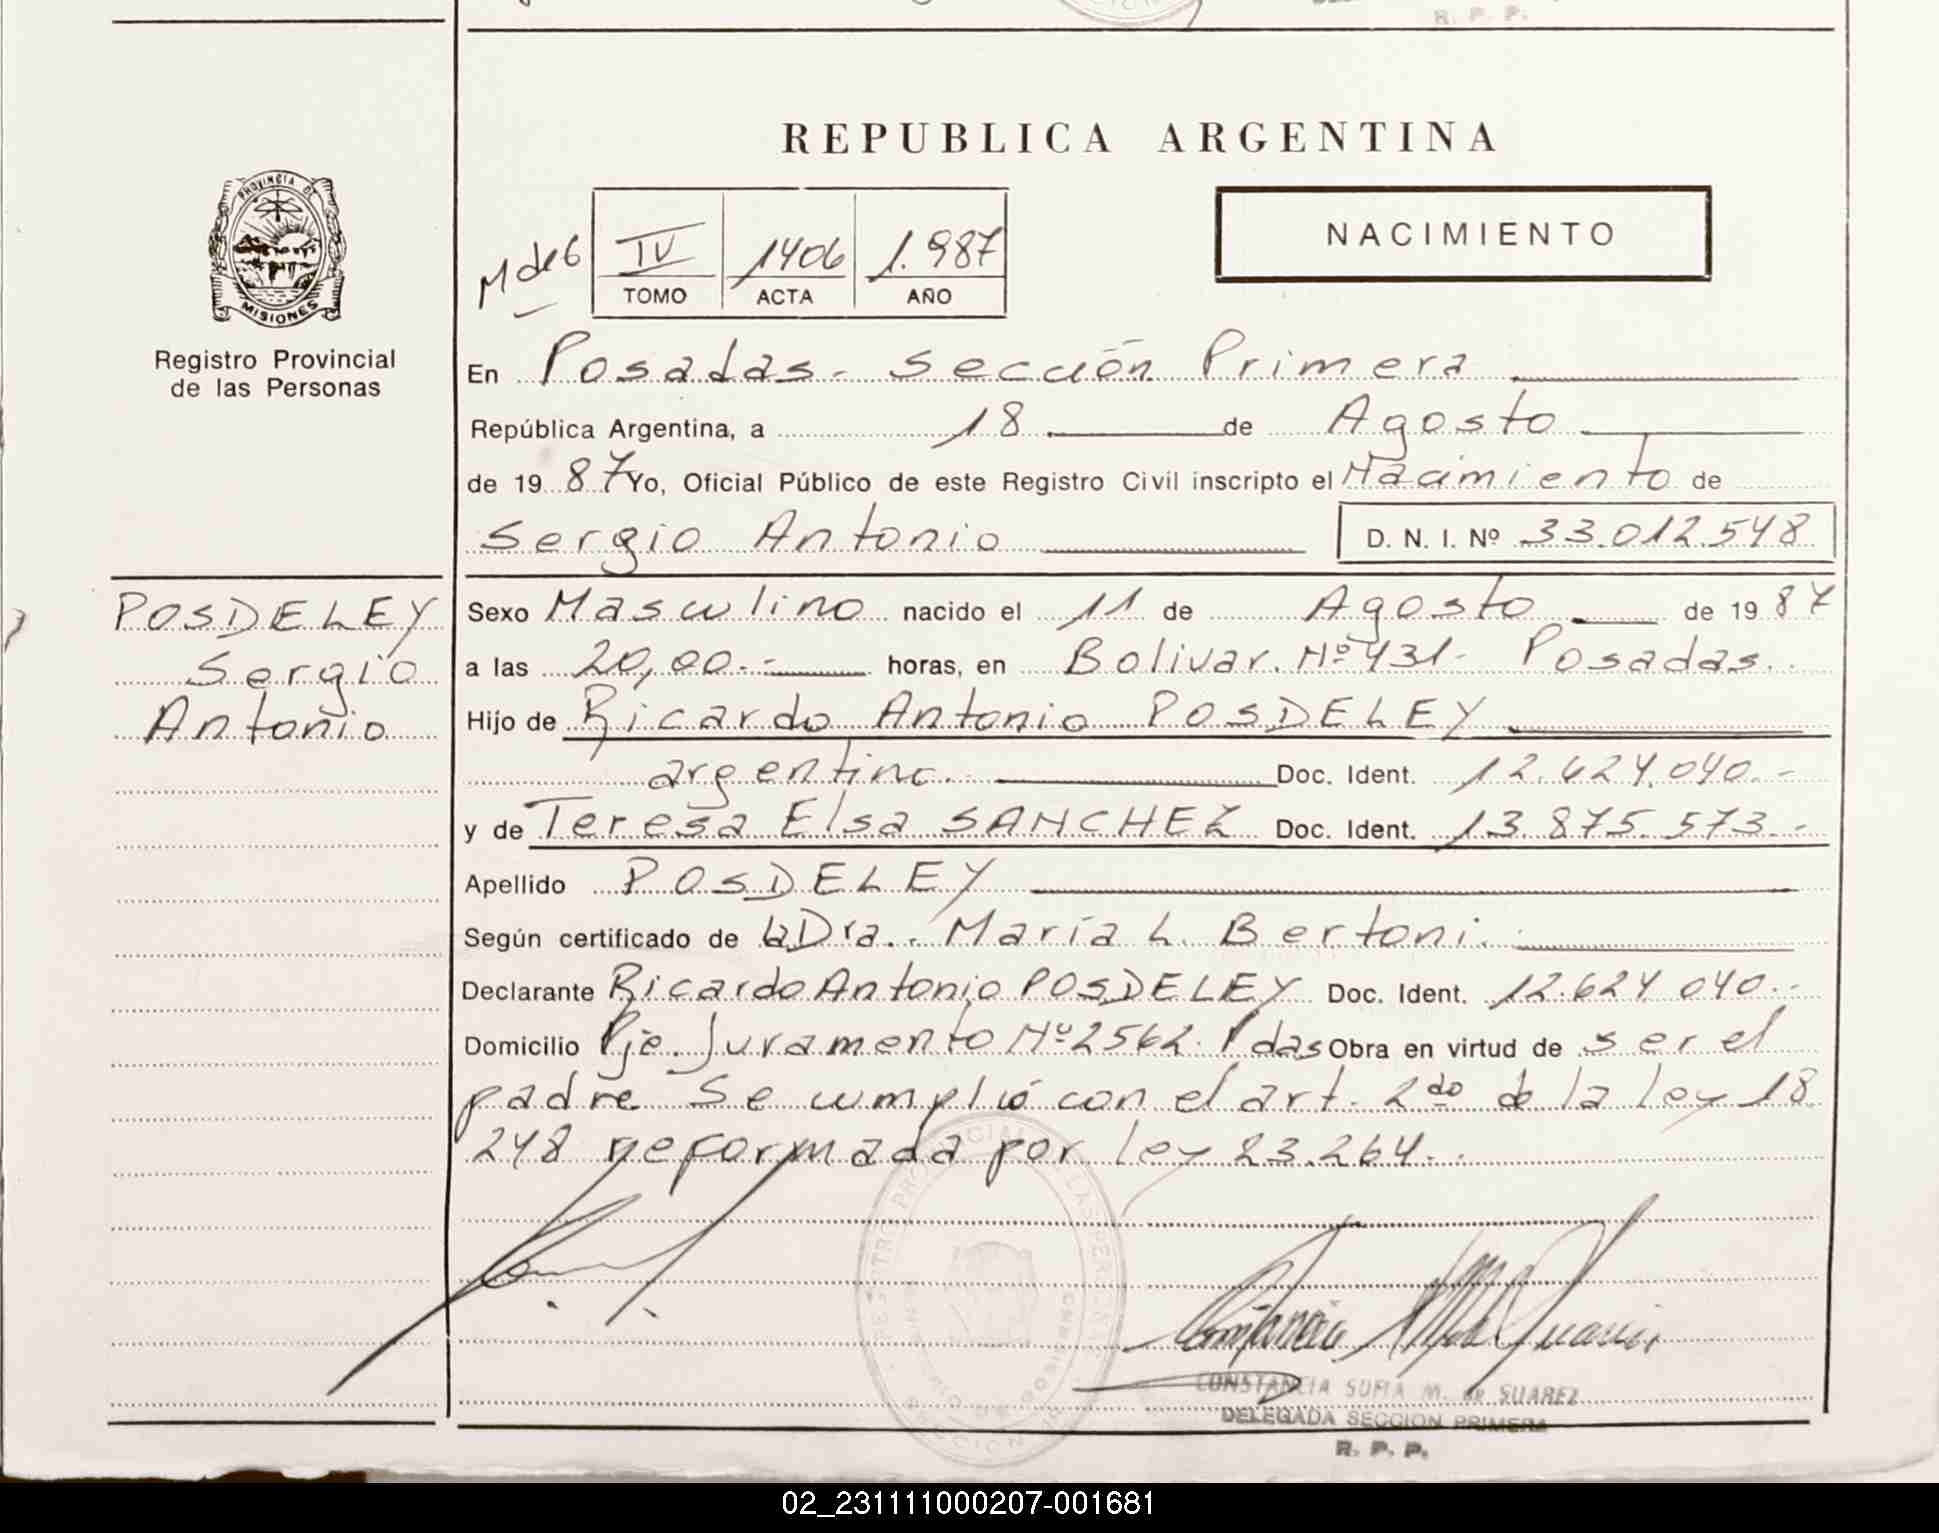 R. P. P.
REPUBLICA ARGENTINA
PROVINCIA DE
MISIONES
Registro Provincial
de las Personas
M de 6
IV 1406 1.987
TOMO ACTA AÑO
NACIMIENTO
En Posadas - Sección Primera
República Argentina, a 18 de Agosto
de 1987 Yo, Oficial Público de este Registro Civil inscripto el Nacimiento de
Sergio Antonio D. N. I. Nº 33.012.548
POSDELEY
Sergio
Antonio
Sexo Masculino nacido el 11 de Agosto de 1987
a las 20,00.- horas, en Bolivar. Nº 431- Posadas.
Hijo de Ricardo Antonio POSDELEY
argentino. Doc. Ident. 12.624.040.-
y de Teresa Elsa SANCHEZ Doc. Ident. 13.875.573.-
Apellido POSDELEY
Según certificado de la Dra. María L. Bertoni.
Declarante Ricardo Antonio POSDELEY Doc. Ident. 12.624.040.-
Domicilio Pje. Juramento Nº 2562. Pdas Obra en virtud de ser el
padre Se cumplió con el art. 2do de la ley 18
248 reformada por ley 23.264.-
CONSTANCIA SOFIA M. de SUAREZ
DELEGADA SECCION PRIMERA
R. P. P.
02_231111000207-001681